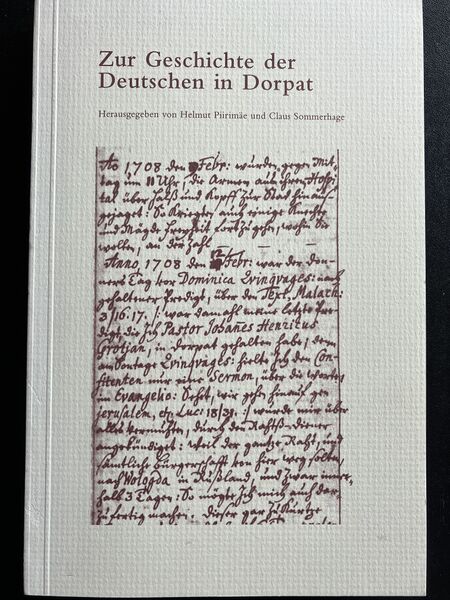 Zur Geschichte der
Deutschen in Dorpat
Herausgegeben von Helmut Piirimäe und Claus Sommerhage
Ao 1708 den Febr: wurden gegen Mit-
tag um 11 Uhr, die Armen aus ihren Hospi-
tal über Halß und Kopff zur Stat hinauß-
gejaget: So kriegten auch einige Knechte
und Mägde Freyheit fort zu gehn, wohin sie
wollen, an der Zahl — — —
Anno, 1708 den 12 Febr: war der don-
ners Tag vor Dominica Qvinqvages: nach
gehaltener Predigt, über den Text, Malach:
3/16.17. /: war damahl meine letzte Pre-
digt, die Ich Pastor Johanes Henricus
Grotjan, in dorpat gehalten habe, denn
am Sontage Qvinqvages: hielte Ich den Con-
fitenten nur eine Sermon, über die Worte,
im Evangelio: Seht, wir gehn hinauf gen
Jerusalem, etc Luc: 18/31. :/ wurde mir über
alles vermuhten, durch den Rahts-diener
angekündiget: weil der gantze Raht, und
sämtliche Bürgerschafft von hier weg solten,
nach Wologda in Rußland, und zwar inner-
halb 3 Tagen: So mögte Ich mich auch dar-
zu fertig machen. Dieser gar zu kurtze